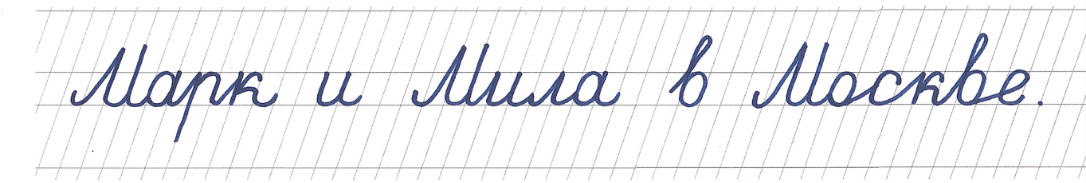 Марк и Мила в Москве.